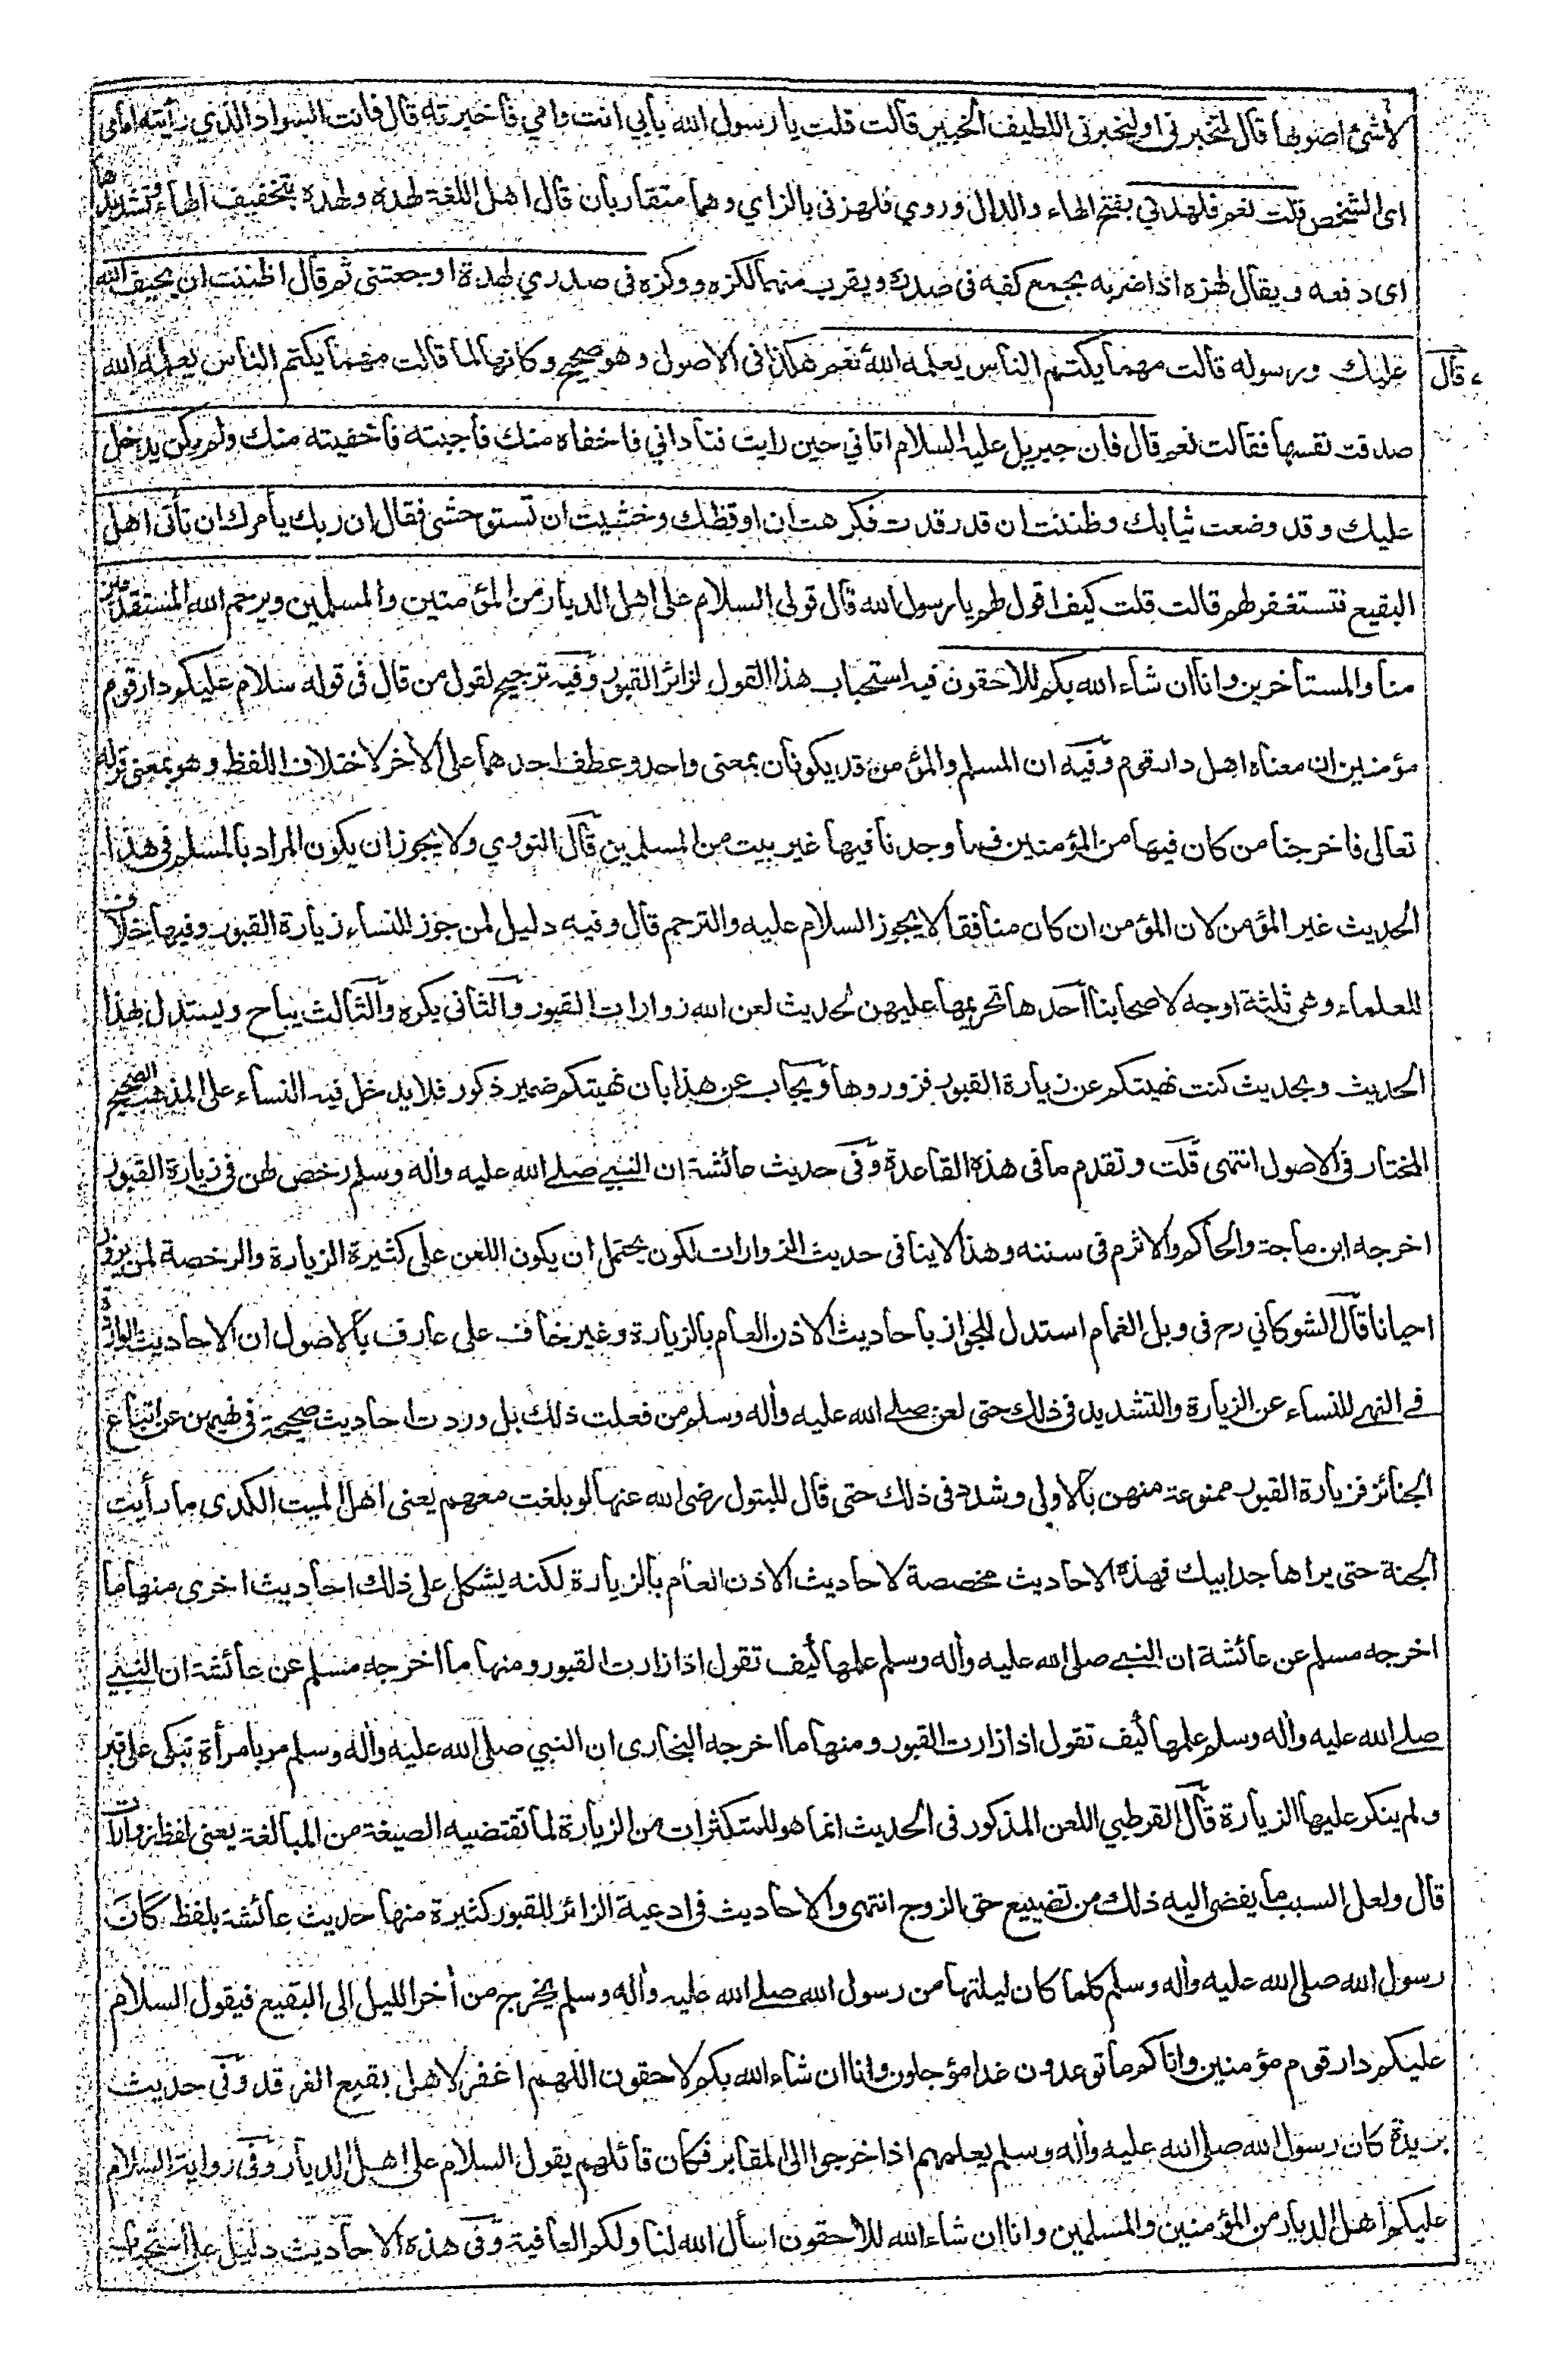 لأشئ اصوبها قال لتخبرنى اوليخبرنى اللطيف الخبير قالت قلت يا رسول الله بأبي انت وامي فأخبرته قال فانت السواد الذي رأيته امامي
اى الشخص قلت نعم فلهدني بفتح الهاء والدال وروي فلهزنى بالزاي وهما متقاربان قال اهل اللغة لهده ولهده بتخفيف الهاء وتشديدها
اى دفعه ويقال لهزه اذا ضربه بجمع كفه فى صدره ويقرب منهما لكزه ووكزه فى صدري لهدة اوجعتنى ثم قال اظننت ان يحيف الله
عليك ورسوله قالت مهما يكتم الناس يعلمه الله نعم هكذا فى الاصول وهو صحيح وكانها لما قالت مهما يكتم الناس يعلمه الله
قال
صدقت نفسها فقالت نعم قال فان جبريل عليه السلام اتاني حين رايت فناداني فاخفاه منك فأجبته فأخفيته منك ولم يكن يدخل
عليك وقد وضعت ثيابك وظننت ان قد رقدت فكرهت ان اوقظك وخشيت ان تستوحشى فقال ان ربك يأمرك ان تأتى اهل
البقيع فتستغفر لهم قالت قلت كيف اقول لهم يا رسول الله قال قولى السلام على اهل الديار من المؤمنين والمسلمين ويرحم الله المستقدمين
منا والمستأخرين وانا ان شاء الله بكم للاحقون فيه استحباب هذا القول لزائر القبور وفيه ترجيح لقول من قال فى قوله سلام عليكم دار قوم
مؤمنين ان معناه اهل دار قوم وفيه ان المسلم والمؤمن قد يكونان بمعنى واحد وعطف احدهما على الأخر لاختلاف اللفظ وهو بمعنى قوله
تعالى فاخرجنا من كان فيها من المؤمنين فما وجدنا فيها غير بيت من المسلمين قال النووي ولا يجوز ان يكون المراد بالمسلم فى هذا
الحديث غير المؤمن لان المؤمن ان كان منافقا لا يجوز السلام عليه والترحم قال وفيه دليل لمن جوز للنساء زيارة القبور وفيها خلاف
للعلماء وهى ثلثة اوجه لاصحابنا احدها تحريمها عليهن لحديث لعن الله زوارات القبور والثانى يكره والثالث يباح ويستدل لهذا
الحديث وبحديث كنت نهيتكم عن زيارة القبور فزوروها ويجاب عن هذا بان نهيتكم ضمير ذكور فلا يدخل فيه النساء على المذهب الصحيح
المختار فى الاصول انتهى قلت وتقدم ما فى هذه القاعدة وفى حديث عائشة ان النبي صلى الله عليه واله وسلم رخص لهن فى زيارة القبور
اخرجه ابن ماجة والحاكم والاثرم فى سننه وهذا لا ينافى حديث الزوارات لكون يحتمل ان يكون اللعن على كثيرة الزيارة والرخصة لمن يزور
احيانا قال الشوكاني رح فى وبل الغمام استدل للجواز بأحاديث الاذن العام بالزيارة وغير خاف على عارف بألاصول ان الاحاديث الواردة
فى النهى للنساء عن الزيارة والتشديد فى ذلك حتى لعن صلى الله عليه واله وسلم من فعلت ذلك بل وردت احاديث صحيحة فى نهيهن عن اتباع
الجنائز فزيارة القبور ممنوعة منهن بالاولى وشدد فى ذلك حتى قال للبتول رضى الله عنها لو بلغت معهم يعنى اهل الميت الكدى ما رأيت
الجنة حتى يراها جد ابيك فهذه الاحاديث مخصصة لاحاديث الاذن العام بالزيارة لكنه يشكل على ذلك احاديث اخرى منها ما
اخرجه مسلم عن عائشة ان النبي صلى الله عليه واله وسلم علمها كيف تقول اذا زارت القبور ومنها ما اخرجه مسلم عن عائشة ان النبي
صلى الله عليه واله وسلم علمها كيف تقول اذا زارت القبور ومنها ما اخرجه البخارى ان النبي صلى الله عليه واله وسلم مر بامرأة تبكى على قبر
ولم ينكر عليها الزيارة قال القرطبي اللعن المذكور فى الحديث انما هو للمتكثرات من الزيارة لما تقتضيه الصيغة من المبالغة يعنى لفظ زوارات
قال ولعل السبب ما يفضى اليه ذلك من تضييع حق الزوج انتهى والاحاديث فى ادعية الزائر للقبور كثيرة منها حديث عائشة بلفظ كان
رسول الله صلى الله عليه واله وسلم كلما كان ليلتها من رسول الله صلى الله عليه واله وسلم يخرج من أخر الليل الى البقيع فيقول السلام
عليكم دار قوم مؤمنين واتاكم ما توعدون غدا مؤجلون وانا ان شاء الله بكم لاحقون اللهم اغفر لاهل بقيع الغرقد وفى حديث
بريدة كان رسول الله صلى الله عليه واله وسلم يعلمهم اذا خرجوا الى المقابر فكان قائلهم يقول السلام على اهل الديار وفى رواية السلام
عليكم اهل الديار من المؤمنين والمسلمين وانا ان شاء الله للاحقون اسأل الله لنا ولكم العافية وفى هذه الاحاديث دليل على استحباب